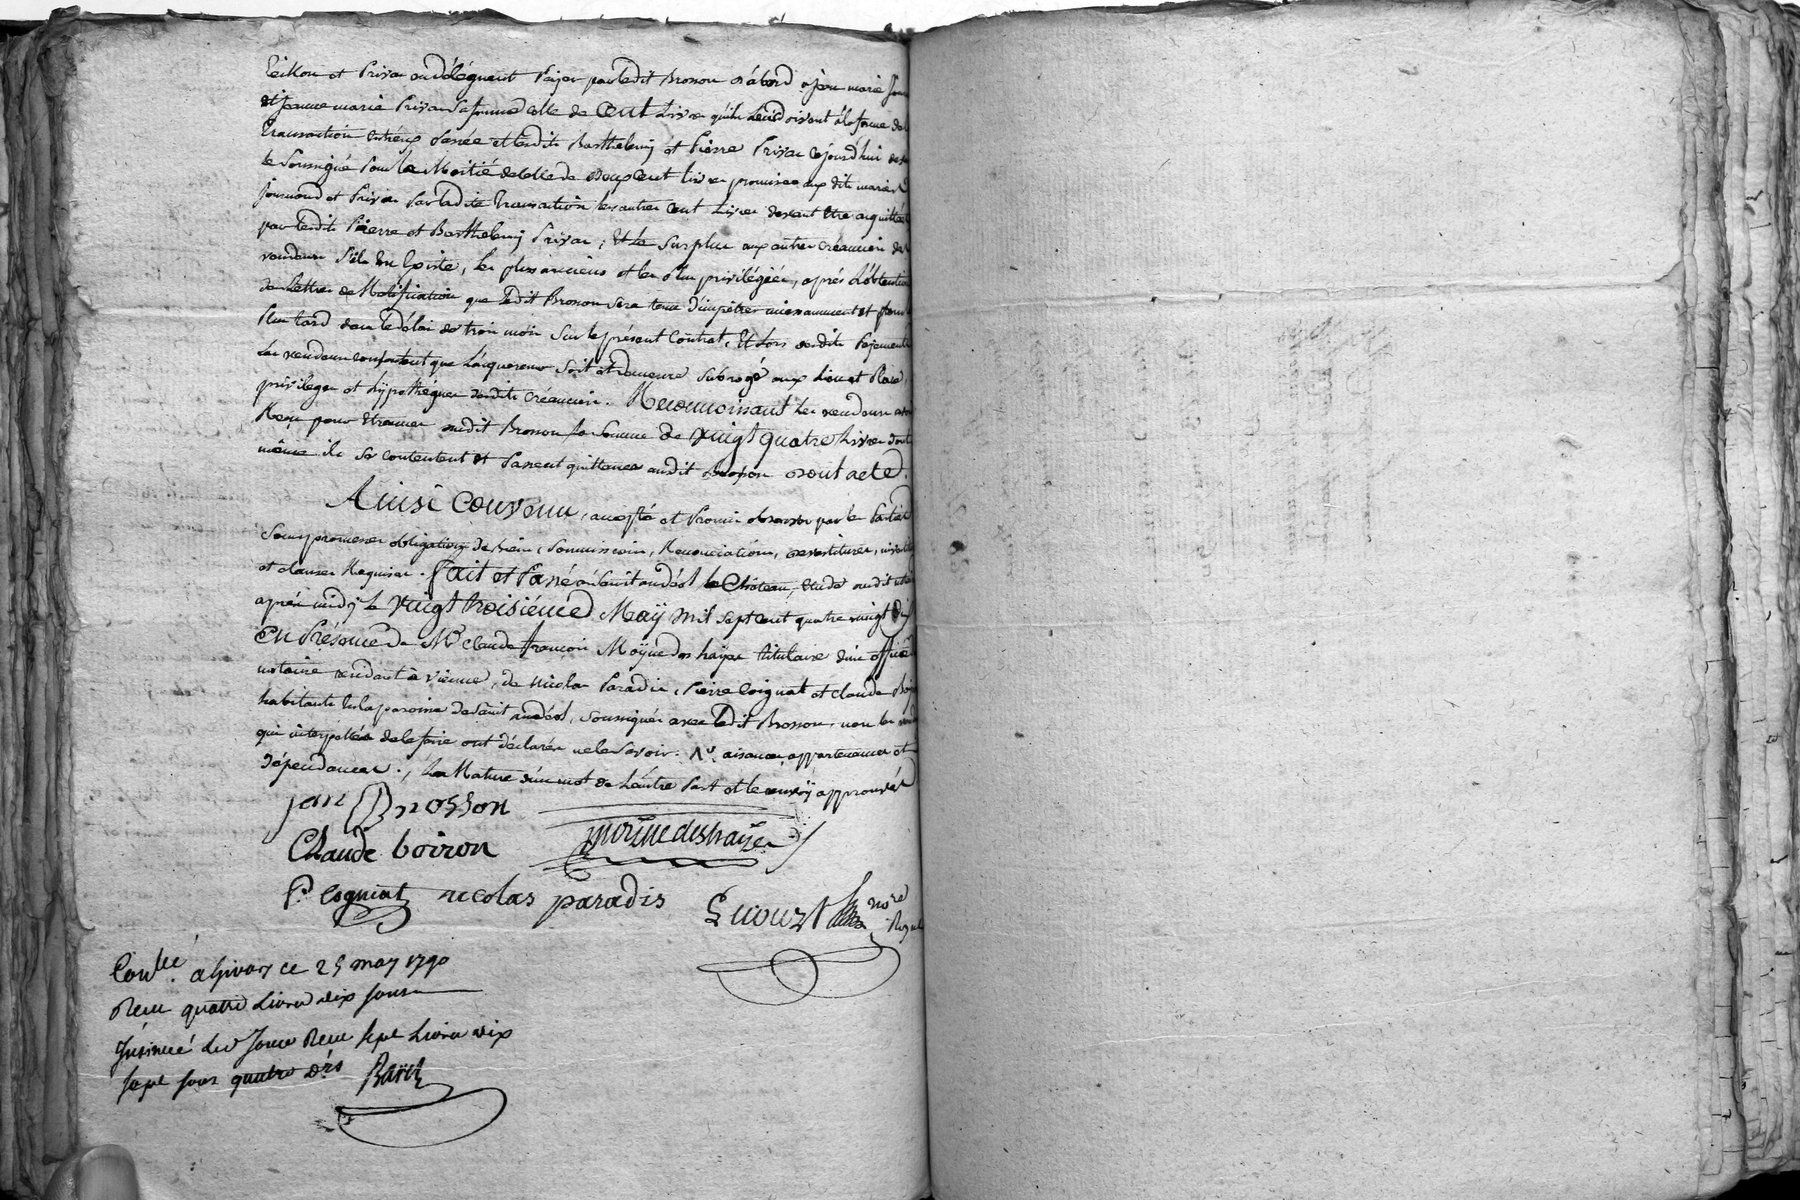 et Privar en délèguent Payer par ledit Brosson d'abord a jean marie
et jeanne marie Privar la somme celle de Cent Livres qu'ils leur doivent à la forme de
Transaction entr'eux Passée et lesdits Barthelemy et Pierre Privar cejourd'hui
le Soussigné Pour la Moitié de celle de Deux Cent livres promises aux dits mariés
Journoud et Privar Par ladite Transaction les autres Cent Livres devant Etre acquittées
par lesdits Pierre et Barthelemy Privar ; Et Le Surplus aux autres créanciers des
vendeurs S'il En Existe, les plus anciens et les plus privilégiés, après L'obtention
de Lettres de Ratification que ledit Brosson sera tenu d'impétrer incessamment et
Plus tard dans le délai de trois mois Sur le présent Contrat, Et Lors desdits Payements
Les vendeurs consentent que L'acquereur Soit et demeure Subrogé aux Lieu et Place,
privileges et hypothéques desdits créanciers. Reconnoissant Les vendeurs avoir
Reçu pour Etrennes dudit Brosson la Somme de vingt quatre Livres dont
même ils se contentent et Passent quittance audit Brosson Dont acte.
Ainsi Convenu, accepté et Promis observer par les Parties
Sous promesses obligation de biens, Soumissions, Renonciations, devestitures,
et clauses Requises. Fait et Passé à Saint andéol le Château, Etude dudit
après midy le vingt troisième May mil sept cent quatre vingt dix
En Présence de Me Claude françois Moyne des hayes titulaire d'un office
notaire résidant à vienne, de nicolas Paradis, Pierre Cogniat et claude
habitants En la paroisse de Saint andéol, Soussignés avec ledit Brosson, non les
qui interpellés de le faire ont déclarés ne le Savoir. aisances, appartenances et
dépendances. La Rature d'un mot de L'autre Part et le renvoÿ approuvés
jean Brosson
Claude boiron moyne des hayes
P. Cogniat nicolas paradis nore Royal
Conllé. a Givors ce 25 may 1790
Recu quatre Livres dix sous
Insinué Led Jour Recu sept Livres dix
sept sous quatre drs